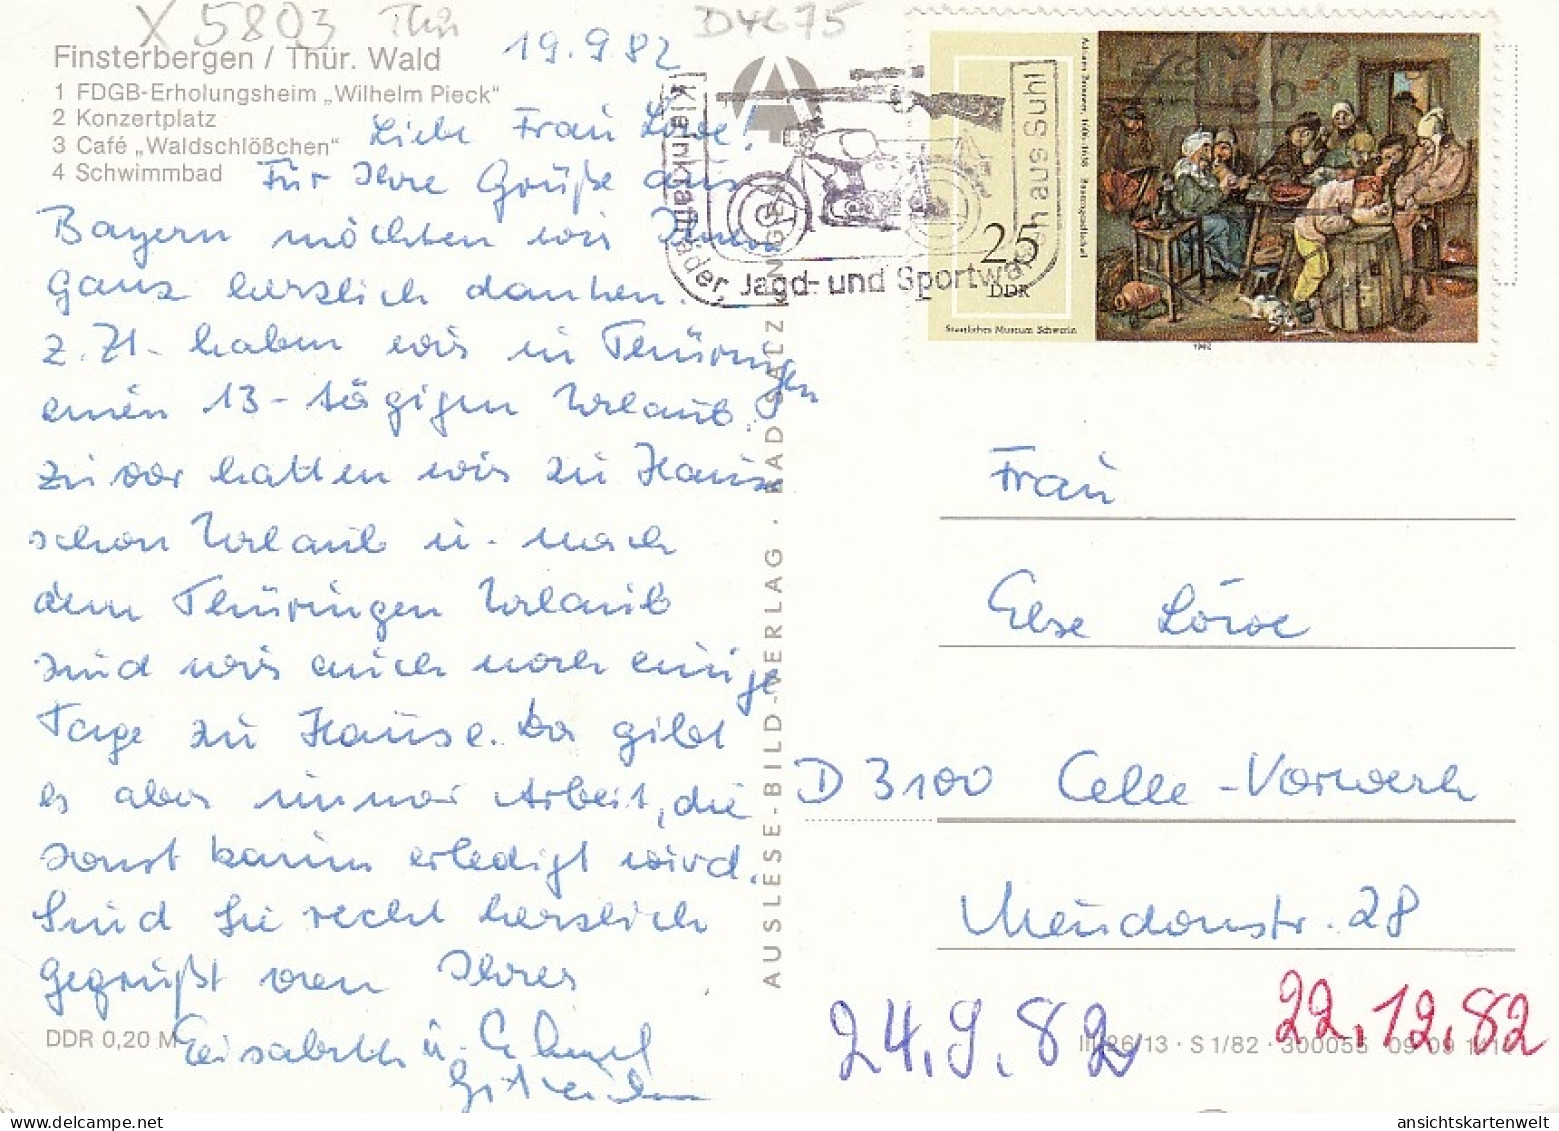 X 5803 Thür
D4675
Finsterbergen / Thür. Wald
1 FDGB-Erholungsheim „Wilhelm Pieck“
2 Konzertplatz
3 Café „Waldschlößchen“
4 Schwimmbad
19.9.82
Liebe Frau Löwe!
Für Ihre Grüße aus
Bayern möchten wir Ihnen
ganz herzlich danken.
z. Zt. haben wir in Thüringen
einen 13-tägigen Urlaub.
Zuvor hatten wir zu Hause
schon Urlaub u. nach
dem Thüringen Urlaub
sind wir auch noch einige
Tage zu Hause. Da gibt
es aber immer Arbeit, die
sonst kaum erledigt wird.
Sind Sie recht herzlich
gegrüßt von Ihrer
Elisabeth u.
DDR 0,20 M
AUSLESE-BILD-VERLAG · BAD SALZUNGEN
Kleinkrafträder, Jagd- und Sportwaffen aus Suhl
25
DDR
Staatliches Museum Schwerin
1982
Frau
Else Löwe
D 3100 Celle-Vorwerk
Meudonstr. 28
24.9.82
22.12.82
III/26/13 · S 1/82 · 300055
ansichtskartenwelt.com